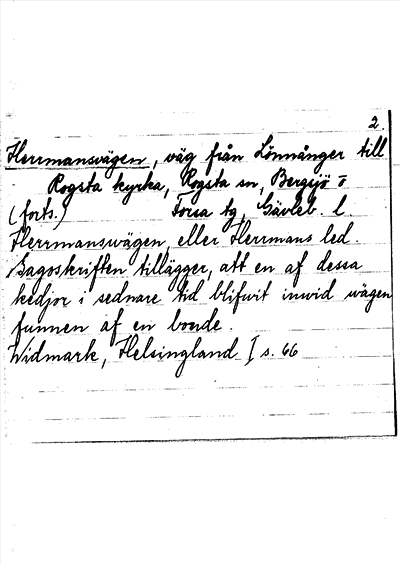 2.
Herrmansvägen, väg från Lönnånger till
Rogsta kyrka, Rogsta sn, Bergsjö o
(forts.) Forsa tg, Gävleb. l.
Herrmanswägen, eller Herrmans led.
Sagoskriften tillägger, att en af dessa
kedjor i sednare tid blifwit inwid wägen
funnen af en bonde.
Widmark, Helsingland I s. 66